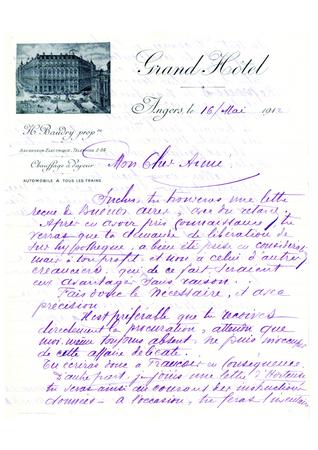 Grand Hôtel
Angers, le 16 / Mai 1912
H. Baudry prop.re
Ascenseur Électrique, Téléphone 2-06
Chauffage à Vapeur
AUTOMOBILE A TOUS LES TRAINS
Mon Cher Aimé
Inclus tu trouveras une lettre
recue de Buenos aires,
Après en avoir pris Connaissance, tu
verras que ta demande de libération de
sur hypothèque, a bien été prise en considéra
mais à ton profit et non à celui d'autres
créanciers qui de ce fait seraient
eux avantagés sans raison.
Fais donc le nécessaire, et avec
précision
Il est préférable que tu recoives
directement la procuration, attendu que
moi même toujours absent, ne puis m'occuper
de cette affaire délicate.
Tu écriras donc à François en Conséquence.
D'autre part, je joins une lettre d'Hortense
tu seras ainsi au courant des instructions
données - à l'occasion, tu feras l'inventaire